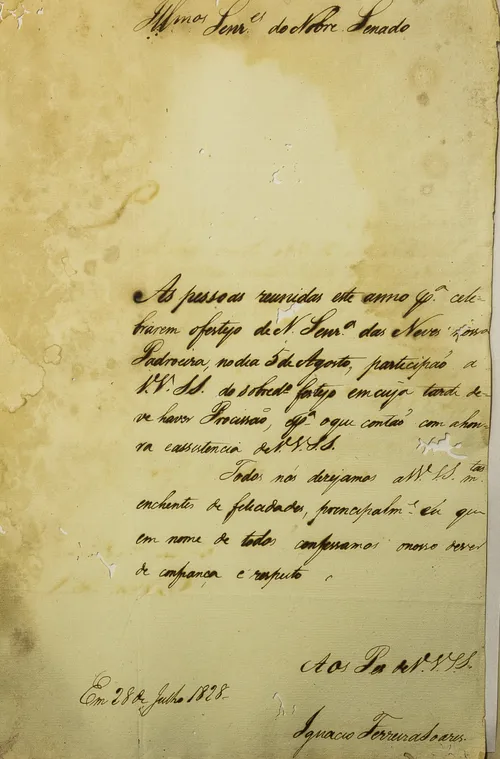 Illmos Senres do Nobre Senado
As pessoas reunidas este anno pa. cele-
brarem ofestejo de N. Senra das Neves Nossa
Padroeira, no dia 5 de Agosto, participaõ a
V.V. SS. do sobredo festejo em cuja tarde de-
ve haver Procissaõ, pa. oque contaõ com ahon-
ra eassistencia de V.V.S.S.
Todos nós dezejamos a VV. SS. mtas
enchentes de felicidades, principalme. eu que
em nome de todos confessamos onosso dever
de confiança e respeito
Aos Pes de V.V.SS.
Em 28 de Julho 1828.
Ignacio Ferreira Soares